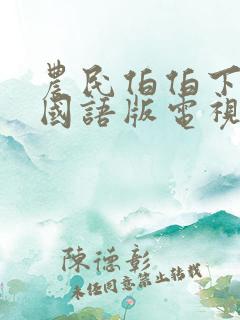 農民伯伯下
國語版電視
陳德彰
未經同意禁止轉載